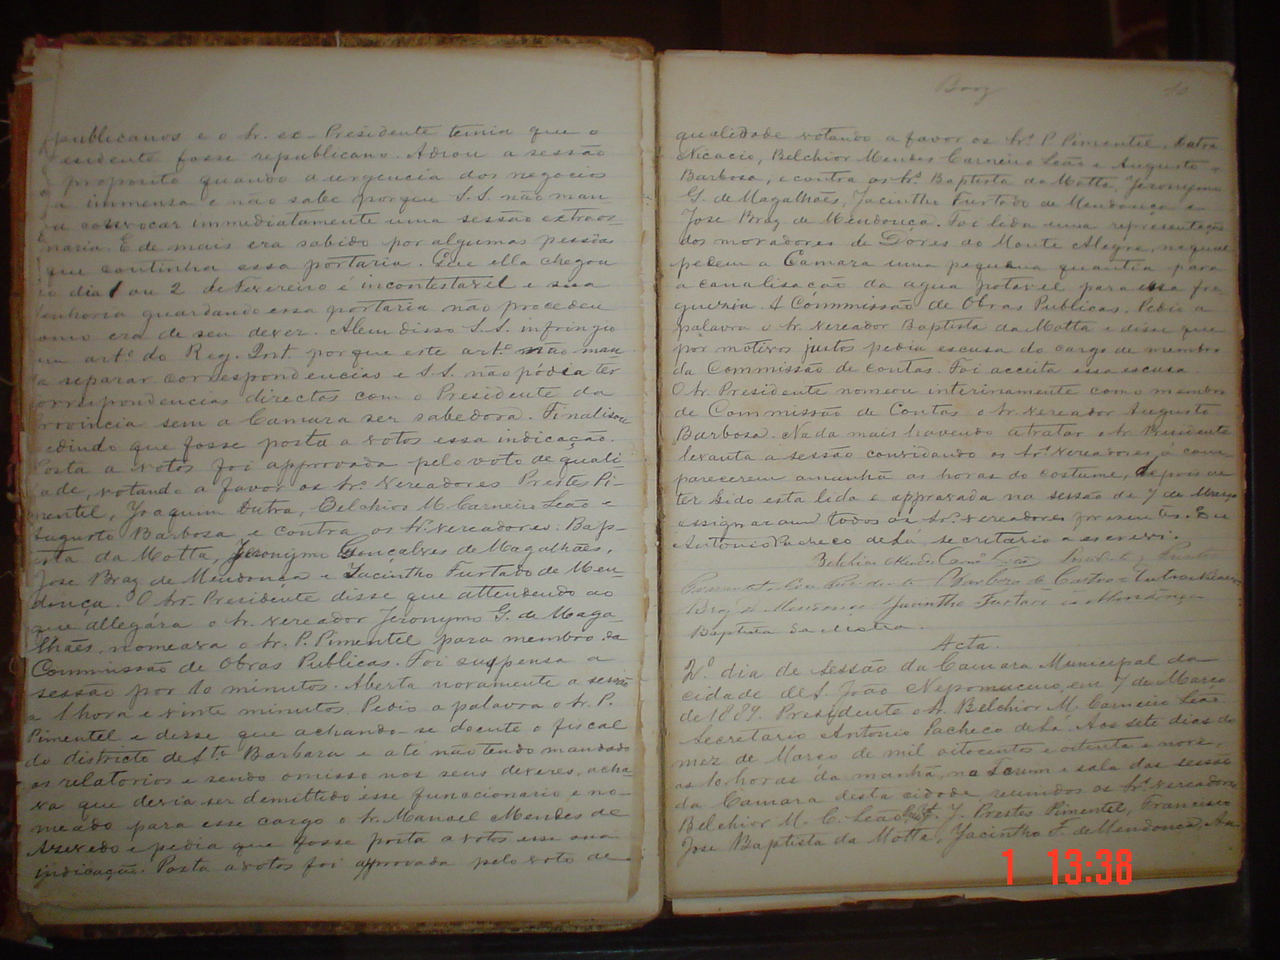 publicanos e o Sr. ex-Presidente temia que o
esidente fosse republicano. Adiou a sessão
proposito quando a urgencia dos negocios
a immensa e não sabe porque S.S. não man
convocar immediatamente uma sessão extraor
naria. E de mais era sabido por algumas pessôas
que continha essa portaria. Que ella chegou
o dia 1 ou 2 de Fevereiro é incontestavel e sua
enhoria guardando essa portaria não procedeu
omo era de seu dever. Alem disso S.S. infringio
um artº do Reg. Int. porque este artº não man
a separar correspondencias e S.S. não podia ter
orrespondencias directas com o Presidente da
rovincia sem a Camara ser sabedora. Finalisou
edindo que fosse posta a votos essa indicação.
Posta a votos foi approvada pelo voto de quali-
ade, votando a favor os Srs. Vereadores Prestes Pi-
mentel, Joaquim Dutra, Belchior M. Carneiro Leão e
Augusto Barbosa, e contra os Srs. vereadores Bap-
tista da Motta, Jeronymo Gonçalves de Magalhães,
José Braz de Mendonça e Jacintho Furtado de Men-
donça. O Sr. Presidente disse que attendendo ao
que allegára o Sr. vereador Jeronymo G. de Maga-
lhães, nomeava o Sr. P. Pimentel para membro da
Commissão de Obras Publicas. Foi suspensa a
sessão por 10 minutos. Aberta novamente a sessão
a 1 hora e vinte minutos. Pedio a palavra o Sr. P.
Pimentel e disse que achando-se doente o fiscal
do districto de Sta. Barbara e até não tendo mandado
os relatorios e sendo omisso nos seus deveres, acha-
va que devia ser demittido esse funccionario e no-
meado para esse cargo o Sr. Manoel Mendes de
Azevedo e pedia que fosse posta a votos essa sua
indicação. Posta a votos foi approvada pelo voto de
Braz
10
qualidade votando a favor os Srs. P. Pimentel, Dutra
Nicacio, Belchior Mendes Carneiro Leão e Augusto
Barbosa, e contra os Srs. Baptista da Motta, Jeronymo
G. de Magalhães, Jacintho Furtado de Mendonça e
José Braz de Mendonça. Foi lida uma representação
dos moradores de Dôres do Monte Alegre, na qual
pedem a Camara uma pequena quantia para
a canalisação da agua potavel para essa fre
guezia. A Commissão de Obras Publicas. Pedio a
palavra o Sr. vereador Baptista da Motta e disse que
por motivos justos pedia escusa do cargo de membro
da Commissão de contas. Foi acceita essa escusa
O Sr. Presidente nomeou interinamente como membro
de Commissão de Contas o Sr. vereador Augusto
Barbosa. Nada mais havendo a tratar o Sr. Presidente
levanta a sessão convidando os Srs. Vereadores a com
parecerem amanhã as horas do costume, depois de
ter sido esta lida e approvada na sessão de 7 de Março
assignaram todos os Srs. vereadores presentes. Eu
Antonio Pacheco de Sá, secretario a escrevi.
Belchior Mendes Carnº Leão
Barbosa de Castro Dutra Nicacio
Braz de Mendonça Jacintho Furtado de Mendonça
Baptista da Motta.
Acta.
2º dia de sessão da Camara Municipal da
cidade de S. João Nepomuceno, em 7 de Março
de 1889. Presidente o Sr. Belchior M. Carneiro Leão
Secretario Antonio Pacheco de Sá. Aos sete dias do
mez de Março de mil oitocentos e oitenta e nove,
as 10 horas da manhã, na sala das sessões
da Camara desta cidade reunidos os Srs. vereadores
Belchior M. C. Leão, J. Prestes Pimentel, Francisco
José Baptista da Motta, Jacintho F. de Mendonça, Au
1 13:38